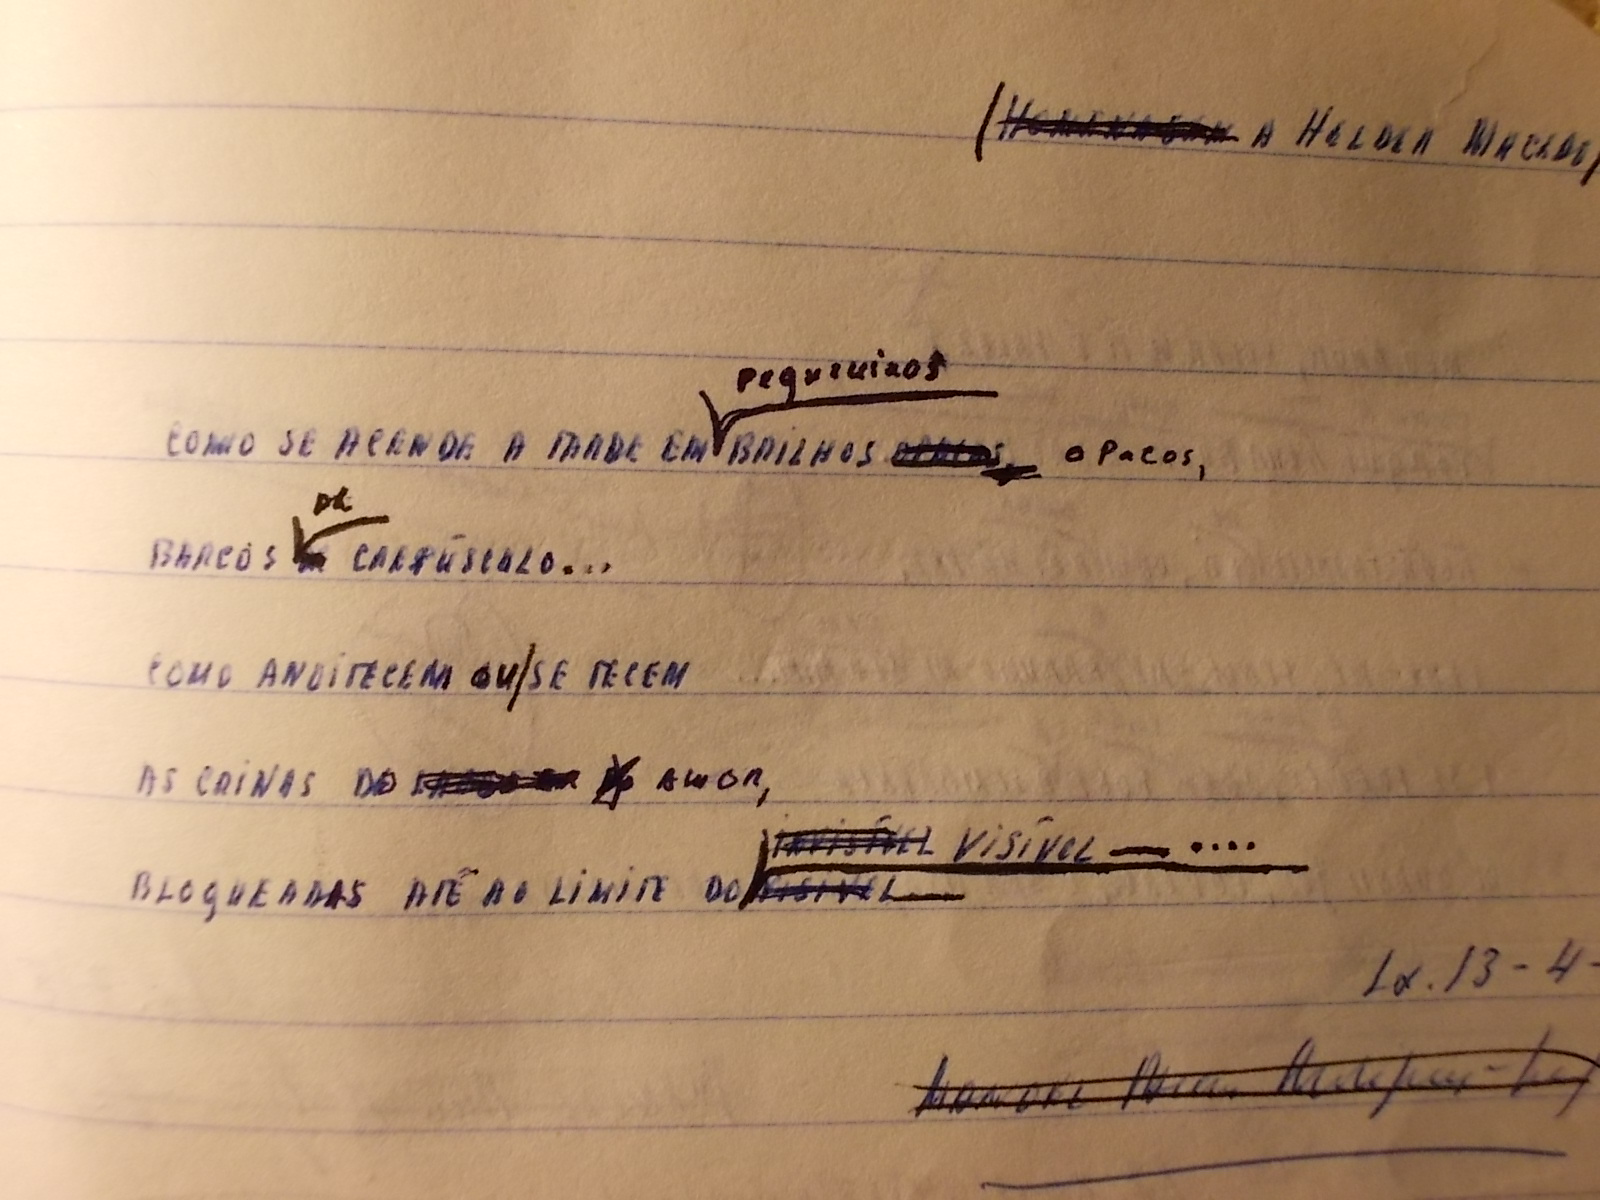 (HOMENAGEM A HELDER MACEDO)
pequeninos
COMO SE ACENDE A TARDE EM BRILHOS OPACOS, OPACOS,
DE
BARCOS CREPÚSCULO...
COMO ANOITECEM OU/SE TECEM
AS CRINAS DO AMOR,
INVISÍVEL VISÍVEL — ....
BLOQUEADAS ATÉ AO LIMITE DO VISÍVEL —
Lx. 13-4-
MANOEL